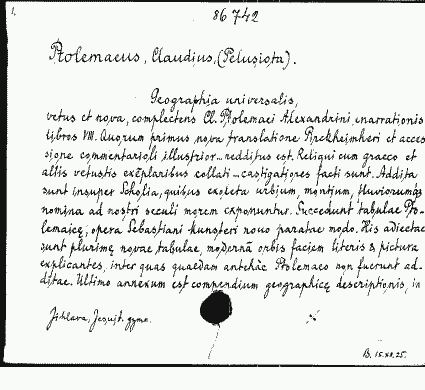 1.
86742
Ptolemaeus, Claudius, (Pelusiota).
Geographia universalis,
vetus et nova, complectens Cl. Ptolemaei Alexandrini enarrationis
libros VIII. Quorum primus nova translatione Pirckheimheri et acces
sione commentarioli illustrior redditus est. Reliqui cum graeco et
aliis vetustis exēplaribus collati castigatiores facti sunt. Addita
sunt insuper Scholia, quibus exoleta urbium, montium, fluviorumq₃
nomina ad nostri seculi morem exponuntur. Succedunt tabulae Pto-
lemaicę, opera Sebastiani Munsteri novo paratae modo. His adiectae
sunt plurimę novae tabulae, modernā orbis faciem literis & pictura
explicantes, inter quas quaedam antehàc Ptolemaeo non fuerunt ad-
ditae. Ultimo annexum est compendium geographicę descriptionis, in
Jihlava, Jesuit. gymn.
B. 15.XII.25.